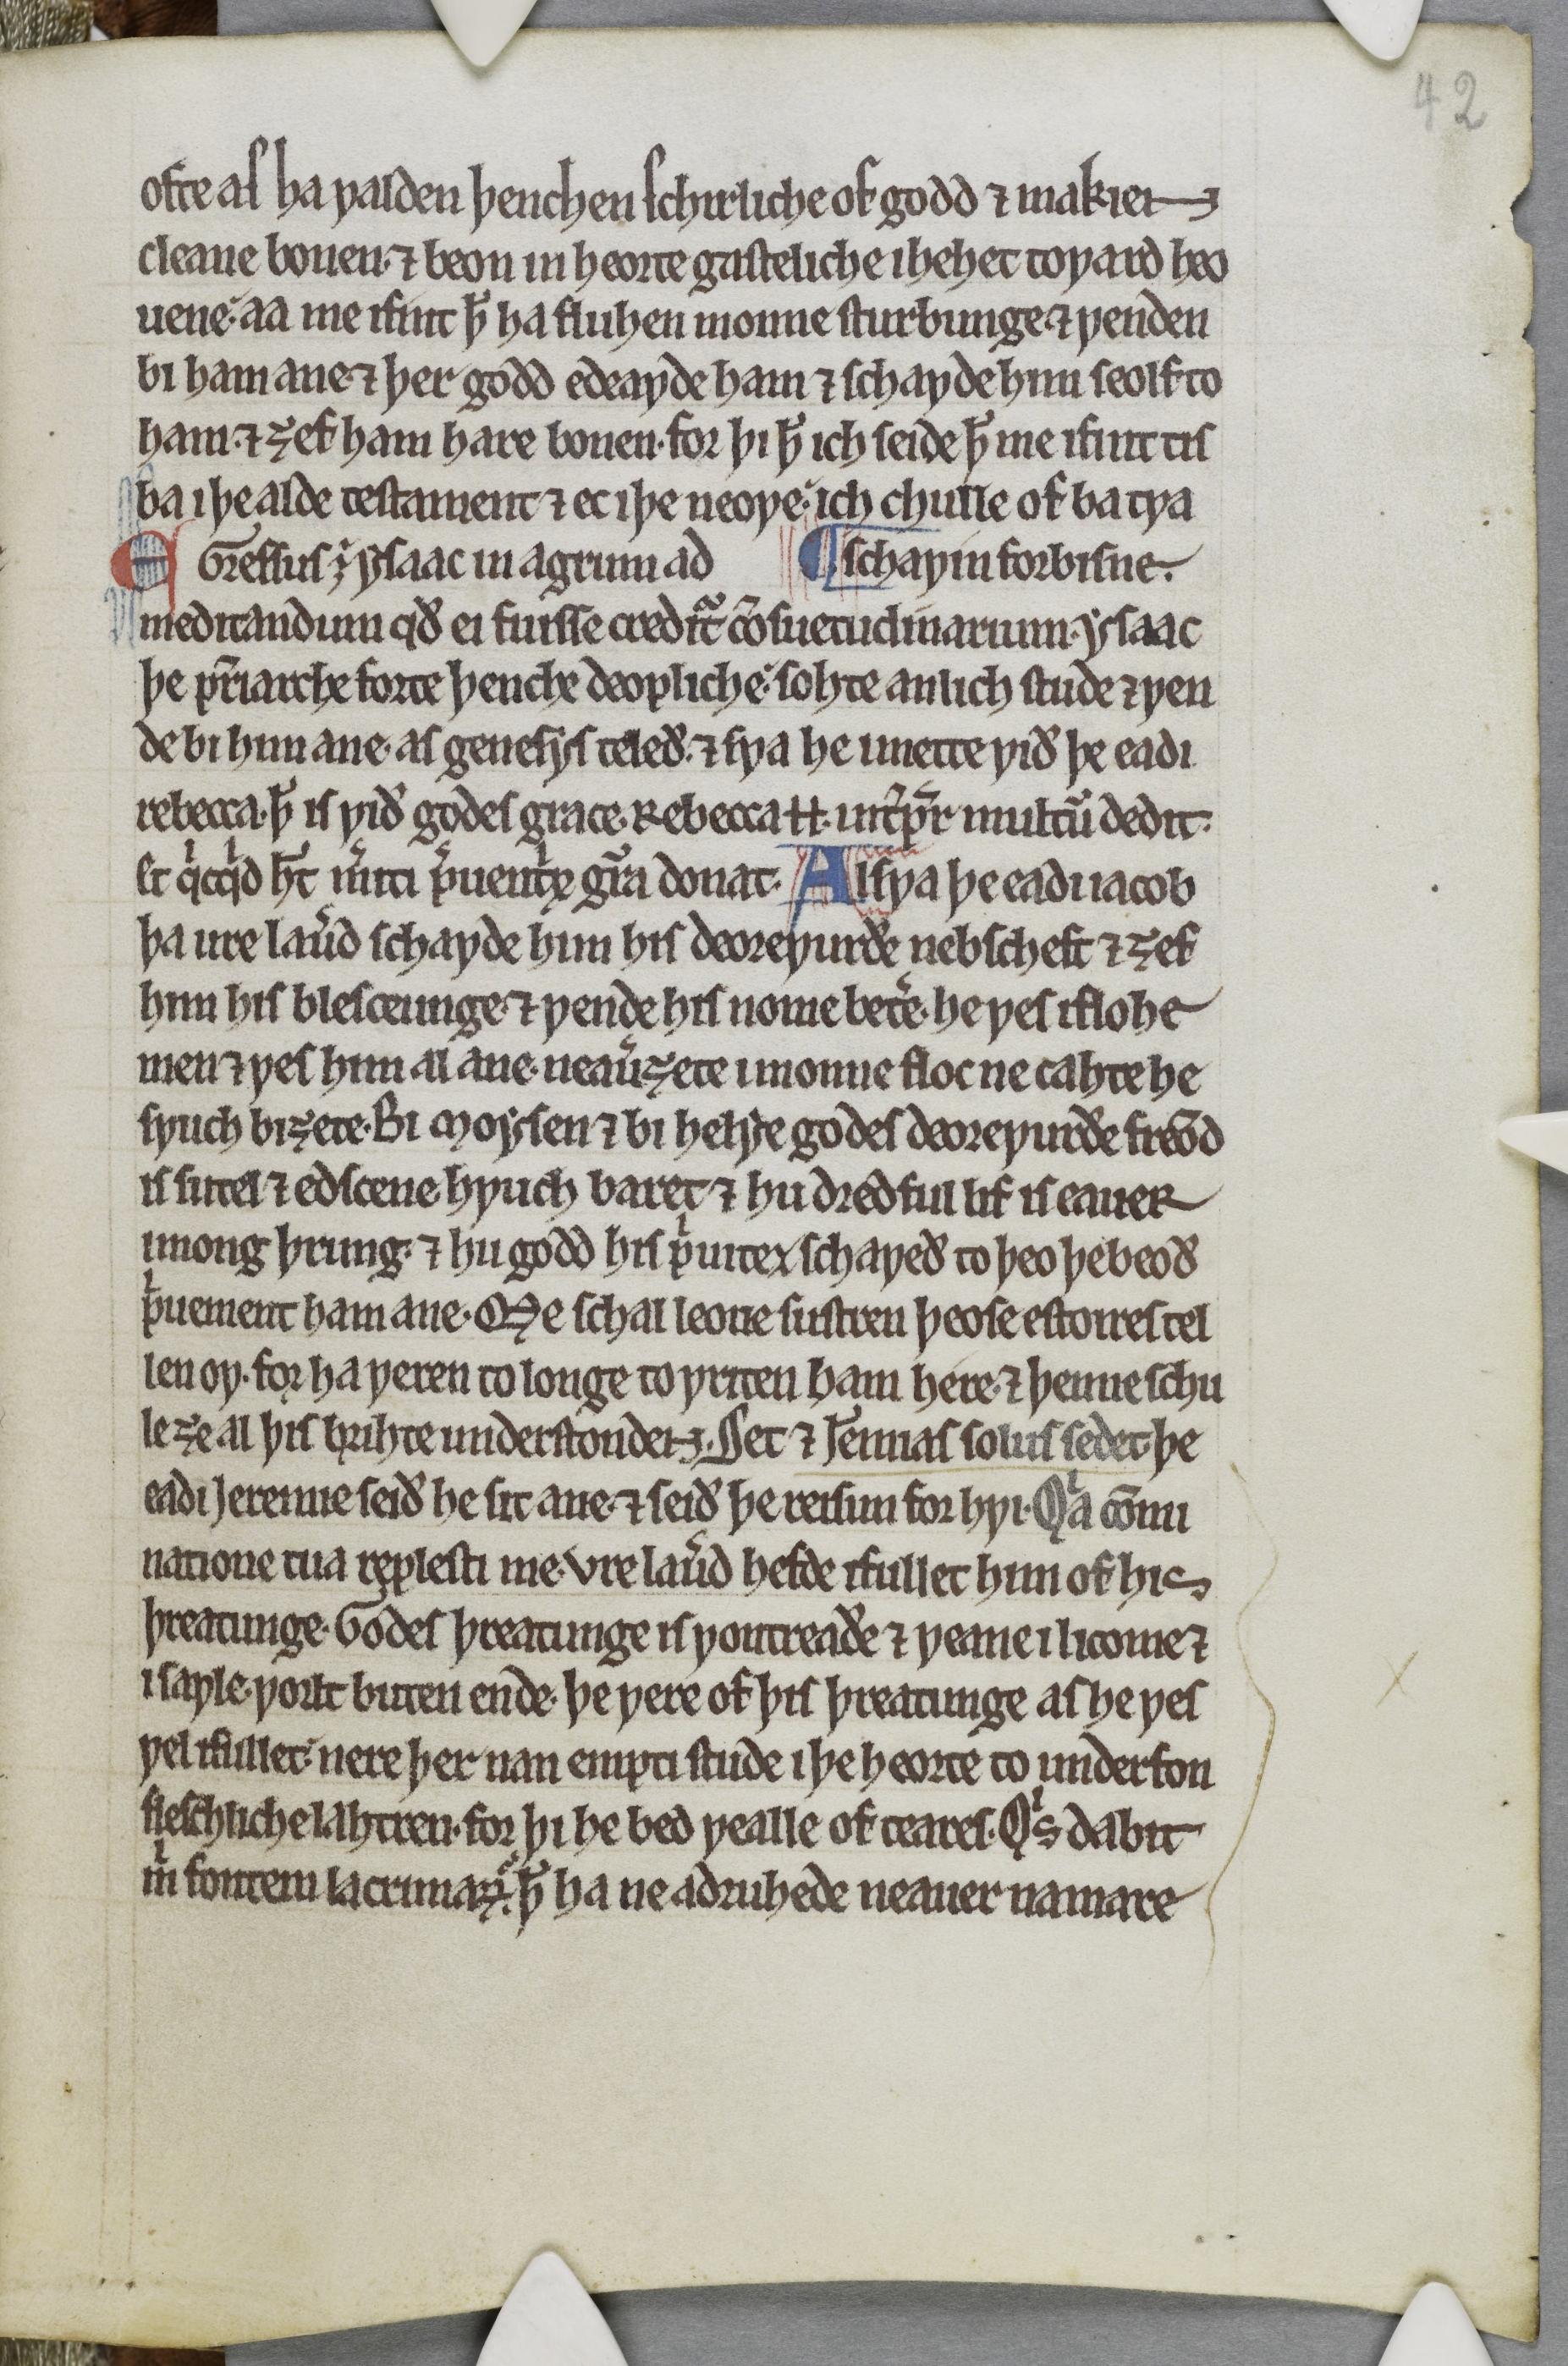 42
ofte as ha ƿalden þenchen schirliche of godd ⁊ makien
cleane bonen· ⁊ beon in heorte gasteliche ihehet toƿard heo
uene· aa me ifint ꝥ ha fluhen monne sturbunge· ⁊ ƿenden
bi ham ane· ⁊ þer godd edeaƿde ham ⁊ schaƿde him seolf to
ham· ⁊ ȝef ham hare bonen· for þi ꝥ ich seide ꝥ me ifint tis
ba i þe alde testament ⁊ ec i þe neoƿe· ich chulle of ba tƿa
Egressus ē ysaac in agrum ad ¶ schaƿin forbisne.
meditandum qđ ei fuisse credit᷑ cōsuetudinarium· Ysaac
þe pr̄iarche forte þenche deopliche· sohte anlich stude ⁊ ƿen
de bi him ane· as genesys teleð· ⁊ sƿa he imette ƿið þe eadi
rebecca· ꝥ is ƿið godes grace· Rebecca .n. int̄p̄r multū dedit·
et qͥcqͥd hт̄ m̄iti p̄uentͥx gr̄a donat· Alsƿa þe eadi iacob
þa ure lau̾d schaƿde him his deoreƿurðe nebscheft ⁊ ȝef
him his blesceunge· ⁊ ƿende his nome bet̾e· he ƿes iflohe
men ⁊ ƿes him al ane· neau̾ ȝete i monne floc ne cahte he
sƿuch biȝete· Bi moysen ⁊ bi helye godes deoreƿurðe freōd
is sutel ⁊ edscene hƿuch baret· ⁊ hu dredful lif is eauer
imong þrung· ⁊ hu godd his pͥuitez schaƿeð to þeo þe beoð
pͥuement ham ane· Me schal leoue sustren þeose estoires tel
len oƿ· for ha ƿeren to longe to ƿriten ham here· ⁊ þenne schu
le ȝe al þis brihte understonden· Set ⁊ Jer̄mias solus sedet· þe
eadi Jeremie seið he sit ane· ⁊ seið þe reisun for hƿi· Qͥa cōmi
natione tua replesti me· Vre lau̾d hefde ifullet him of his
þreatunge· Godes þreatunge is ƿontreaðe ⁊ ƿeane i licome ⁊
i saƿle· ƿorlt buten ende· þe ƿere of þis þreatunge as he ƿes
ƿel ifullet· nere þer nan empti stude i þe heorte to underfon
fleschliche lahtren· for þi he bed ƿealle of teares· Qͥs dabit
m̄ fontem lacrimaꝝ· ꝥ ha ne adruhede neauer na mare